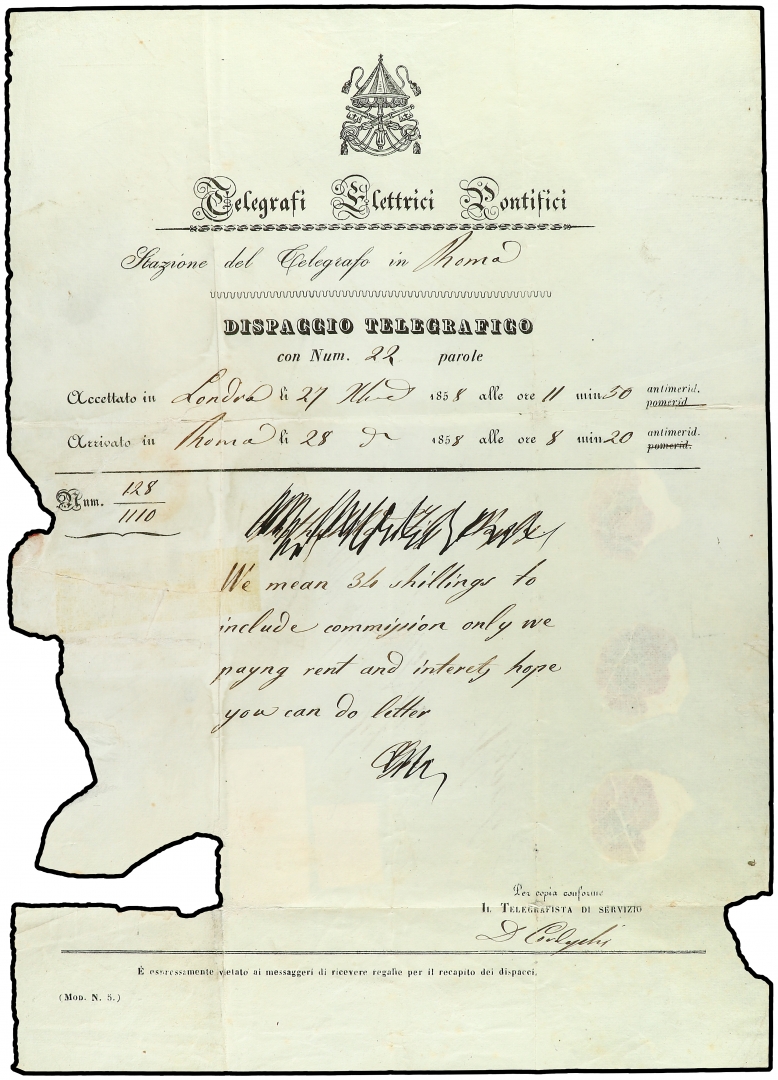 Telegrafi Elettrici Pontifici
Stazione del Telegrafo in Roma
DISPACCIO TELEGRAFICO
con Num. 22 parole
Accettato in Londra li 27 1858 alle ore 11 min 50 antimerid. pomerid
Arrivato in Roma li 28 1858 alle ore 8 min 20 antimerid. pomerid.
Num. 128
1110
We mean 34 shillings to
include commission only we
payng rent and interets hope
you can do letter
Per copia conforme
IL TELEGRAFISTA DI SERVIZIO
È espressamente vietato ai messaggeri di ricevere regalie per il recapito dei dispacci.
(MOD. N. 5.)